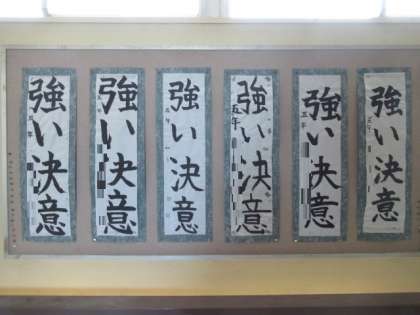 強い決意
五年
強い決意
五年
強い決意
五年
強い決意
五年
強い決意
強い決意
五年